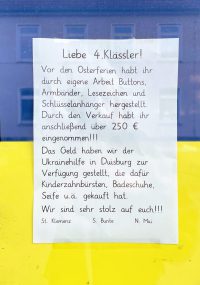 Liebe 4.Klässler!
Vor den Osterferien habt ihr
durch eigene Arbeit Buttons,
Armbänder, Lesezeichen und
Schlüsselanhänger hergestellt.
Durch den Verkauf habt ihr
anschließend über 250 €
eingenommen!!!
Das Geld haben wir der
Ukrainehilfe in Duisburg zur
Verfügung gestellt, die dafür
Kinderzahnbürsten, Badeschuhe,
Seife u.ä. gekauft hat.
Wir sind sehr stolz auf euch!!!
S. Bunte N.